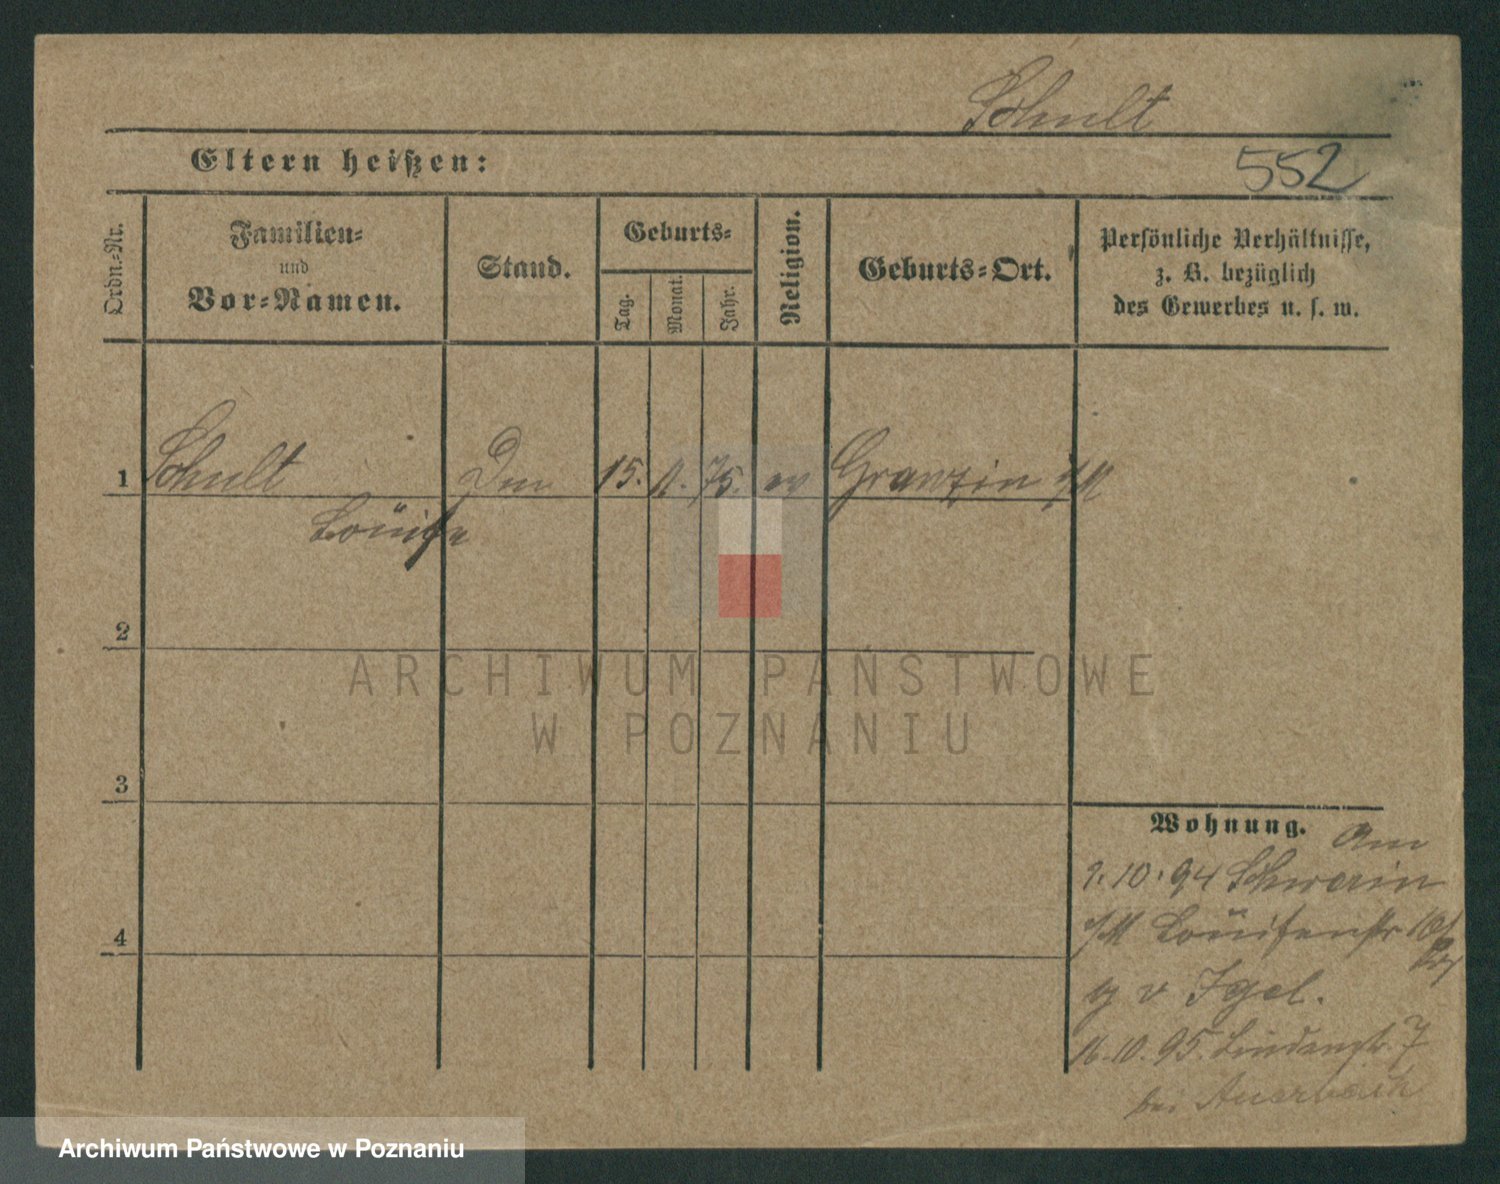 Schult
Eltern heißen:
552
Ordn.-Nr.
Familien-
und
Vor-Namen.
Stand.
Geburts-
Tag.
Monat.
Jahr.
Religion.
Geburts-Ort.
Persönliche Verhältnisse,
z. B. bezüglich
des Gewerbes u. s. w.
1 Schult 15. 11. 75. ev Granzin i/M
Louise
2
3
4
Wohnung. Am
2.10.94 Schwerin
i/M Louisenstr
v Igel.
11.10.95. Lindenstr. 7
bei Auerbach
ARCHIWUM PAŃSTWOWE
W POZNANIU
Archiwum Państwowe w Poznaniu